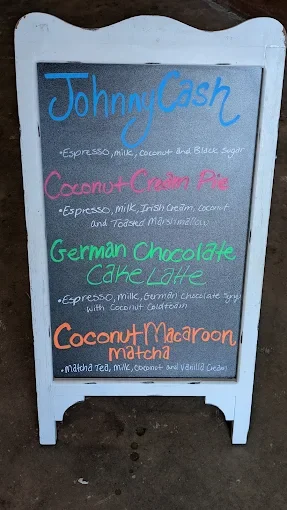 Johnny Cash
•Espresso, milk, coconut and Black Sugar
Coconut Cream Pie
•Espresso, Milk, Irish Cream, Coconut
and Toasted Marshmallow
German Chocolate
Cake Latte
•Espresso, milk, German chocolate Syrup
with Coconut Coldfoam
Coconut Macaroon
Matcha
•Matcha Tea, milk, coconut and Vanilla Cream